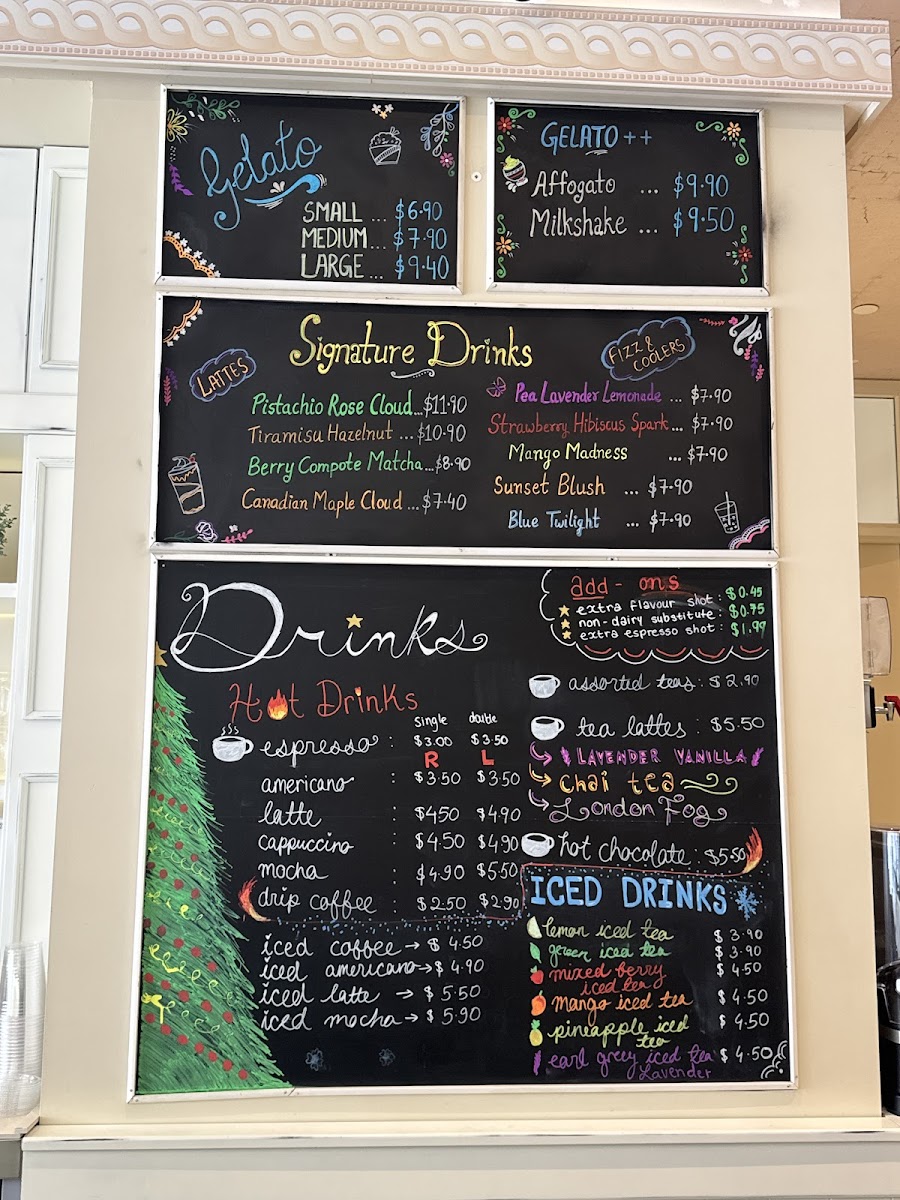 Gelato
SMALL ... $6.90
MEDIUM ... $7.90
LARGE ... $9.40
GELATO ++
Affogato ... $9.90
Milkshake ... $9.50
Signature Drinks
LATTES
Pistachio Rose Cloud...$11.90
Tiramisu Hazelnut ...$10.90
Berry Compote Matcha...$8.90
Canadian Maple Cloud ...$7.40
FIZZ &
COOLERS
Pea Lavender Lemonade ... $7.90
Strawberry Hibiscus Spark... $7.90
Mango Madness ... $7.90
Sunset Blush ... $7.90
Blue Twilight ... $7.90
Drinks
add-ons
extra flavour shot: $0.45
non-dairy substitute: $0.75
extra espresso shot: $1.99
Hot Drinks
single double
espresso : $3.00 $3.50
R L
americano : $3.50 $3.50
latte : $4.50 $4.90
cappuccino : $4.50 $4.90
mocha : $4.90 $5.50
drip coffee : $2.50 $2.90
iced coffee → $4.50
iced americano → $4.90
iced latte → $5.50
iced mocha → $5.90
assorted teas: $2.90
tea lattes: $5.50
LAVENDER VANILLA
chai tea
London Fog
hot chocolate: $5.50
ICED DRINKS
lemon iced tea $3.90
green iced tea $3.90
mixed berry $4.50
iced tea
mango iced tea $4.50
pineapple iced $4.50
tea
earl grey iced tea $4.50
Lavender